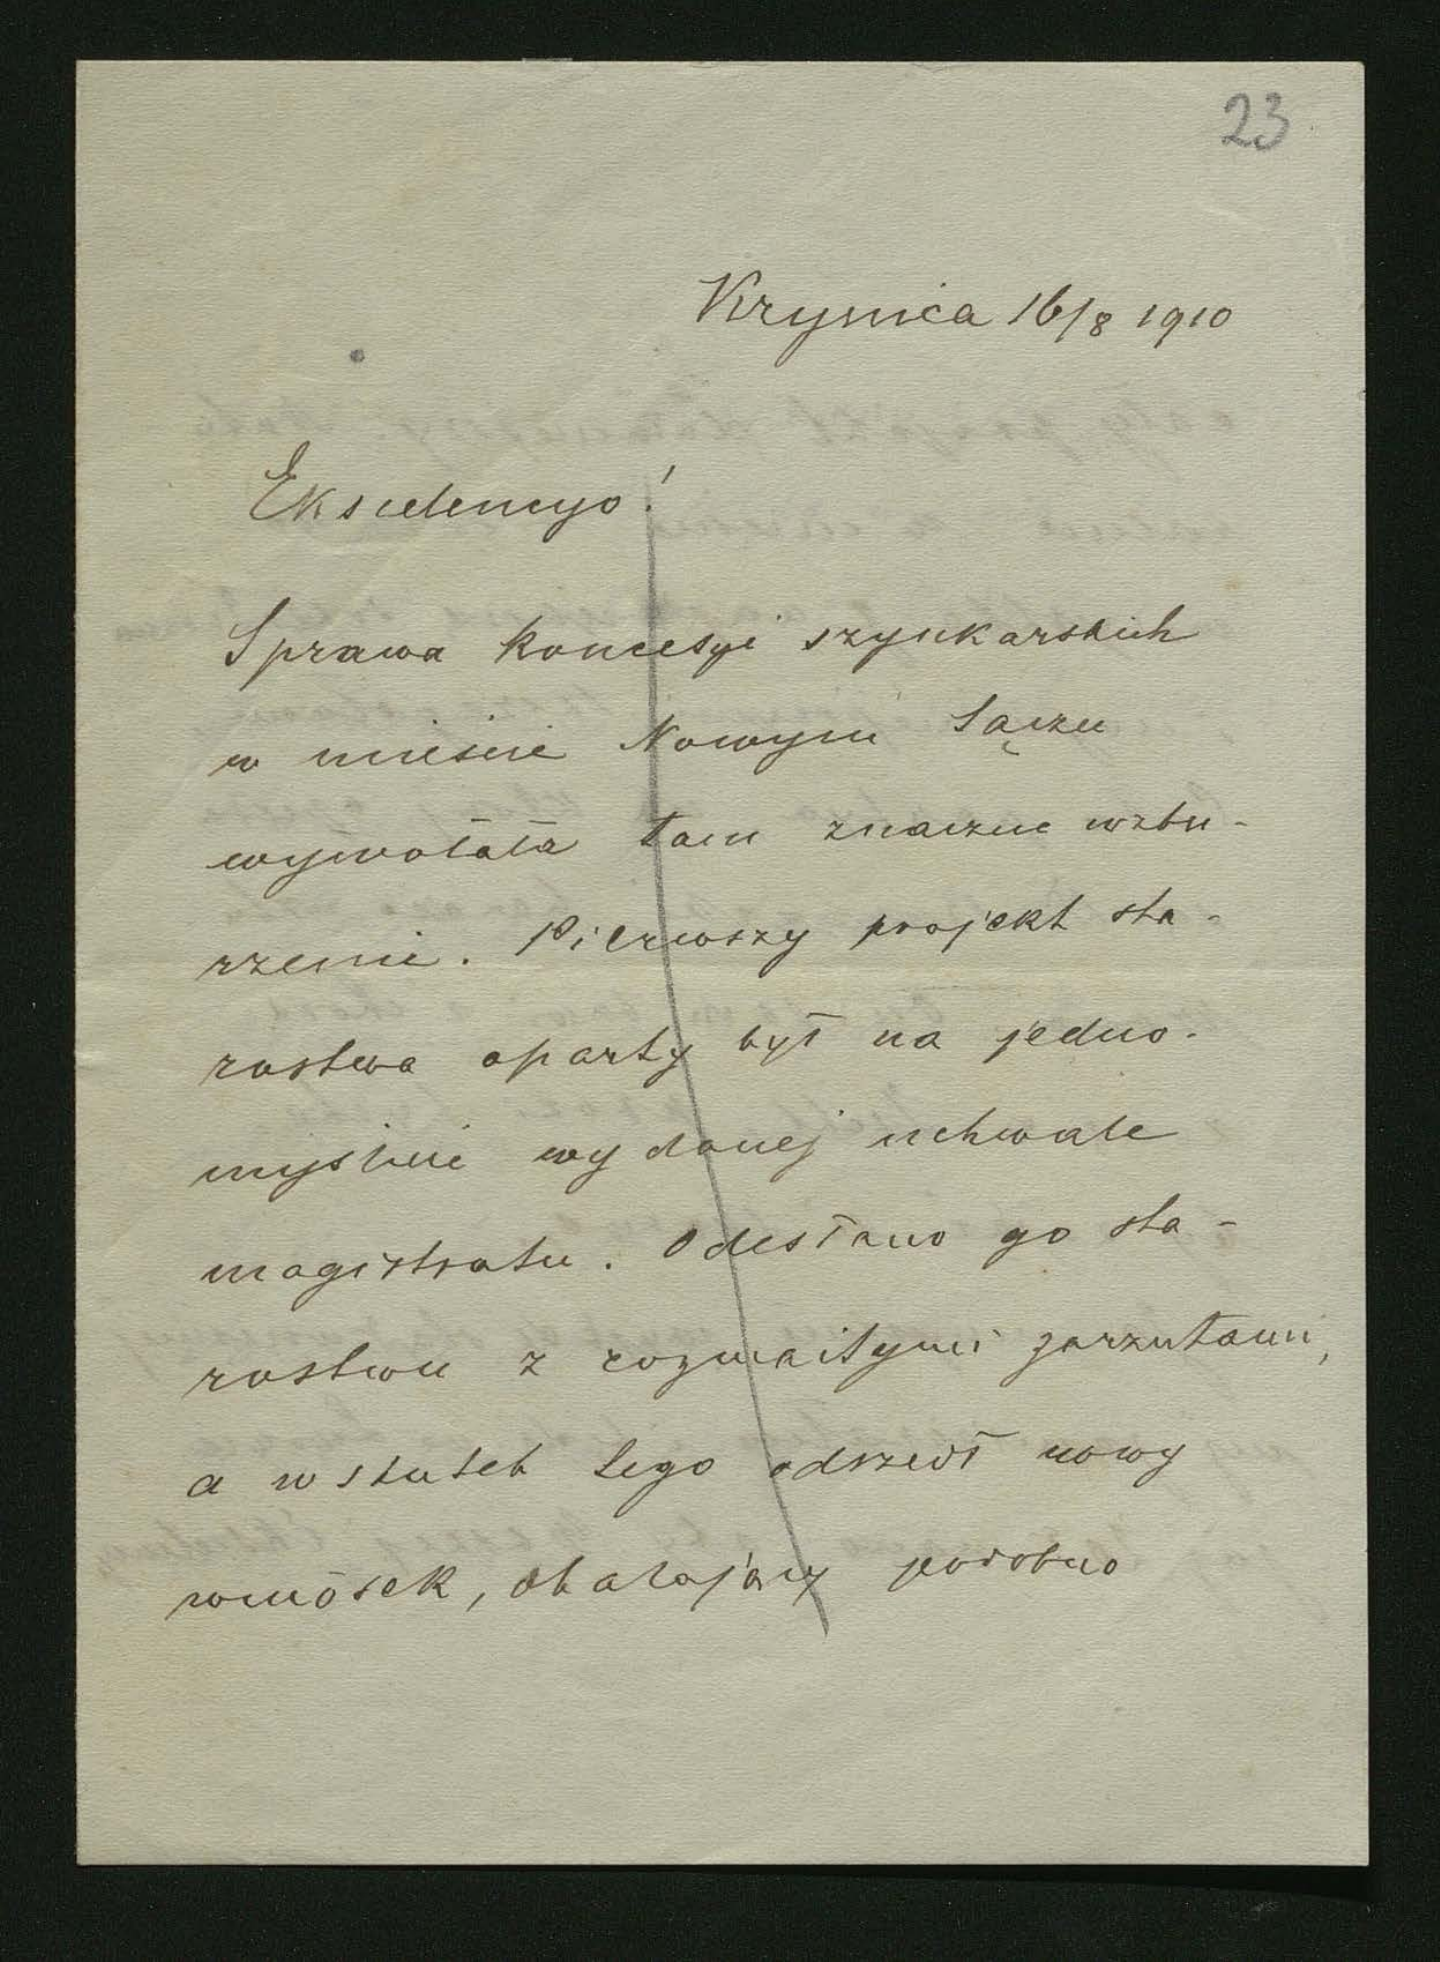 23
Krynica 16/8 1910
Ekscelencyo!
Sprawa koncesyi szynkarskich
w mieście Nowym Sączu
wywołała tam znaczne wzbu-
rzenie. Pierwszy projekt sta-
rostwa oparty był na jedno-
myślnie wydanej uchwale
magistratu. Odesłano go sta-
rostwu z rozmaitymi zarzutami,
a wskutek tego odszedł nowy
wniosek, obalający podobno